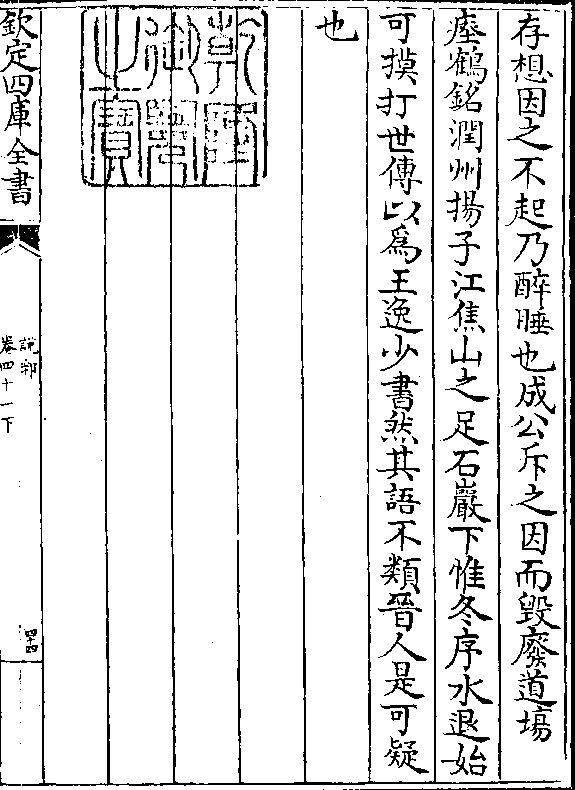 存想因之不起乃醉睡也成公斥之因而毀廢道場
瘞鶴銘潤州揚子江焦山之足石巖下惟冬序水退始
可摸打世傳以為王逸少書然其語不類晉人是可疑
也
乾隆御覽之寶
欽定四庫全書
說郛
卷四十一下
四十四